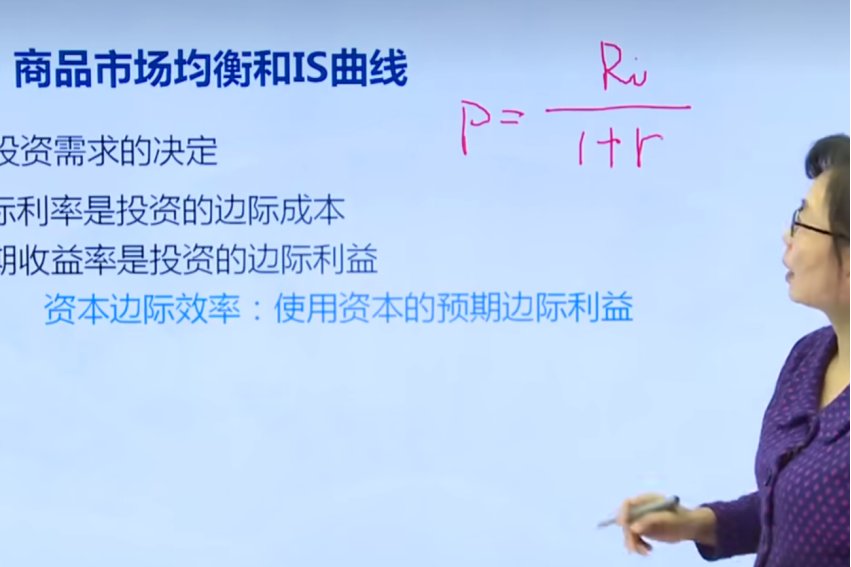 商品市场均衡和IS曲线
P = Ri / 1+r
投资需求的决定
际利率是投资的边际成本
期收益率是投资的边际利益
资本边际效率：使用资本的预期边际利益